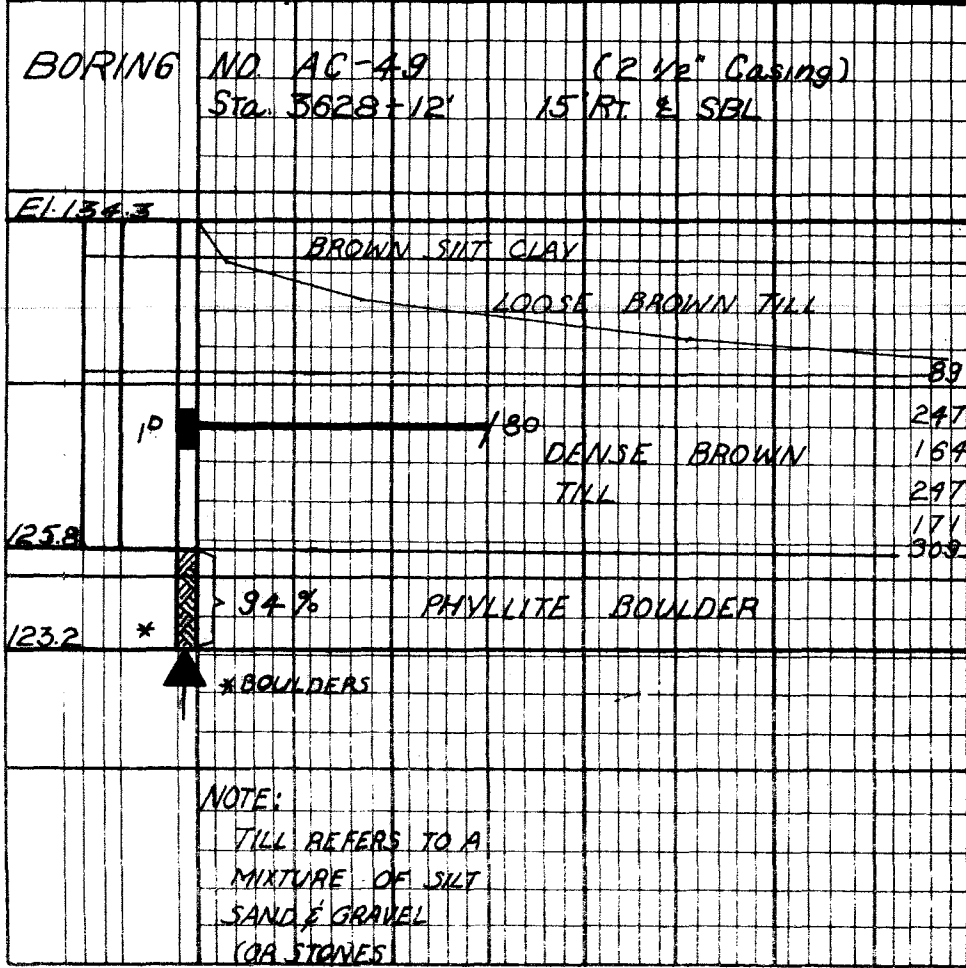 BORING NO. AC-49 (2 1/2" Casing)
Sta. 3628+12' 15' RT. ℄ SBL
El. 134.3
BROWN SILT CLAY
LOOSE BROWN TILL
89
247
1D 80
DENSE BROWN 164
TILL 247
171
125.8 309
94% PHYLLITE BOULDER
123.2 *
*BOULDERS
NOTE:
TILL REFERS TO A
MIXTURE OF SILT
SAND & GRAVEL
(OR STONES